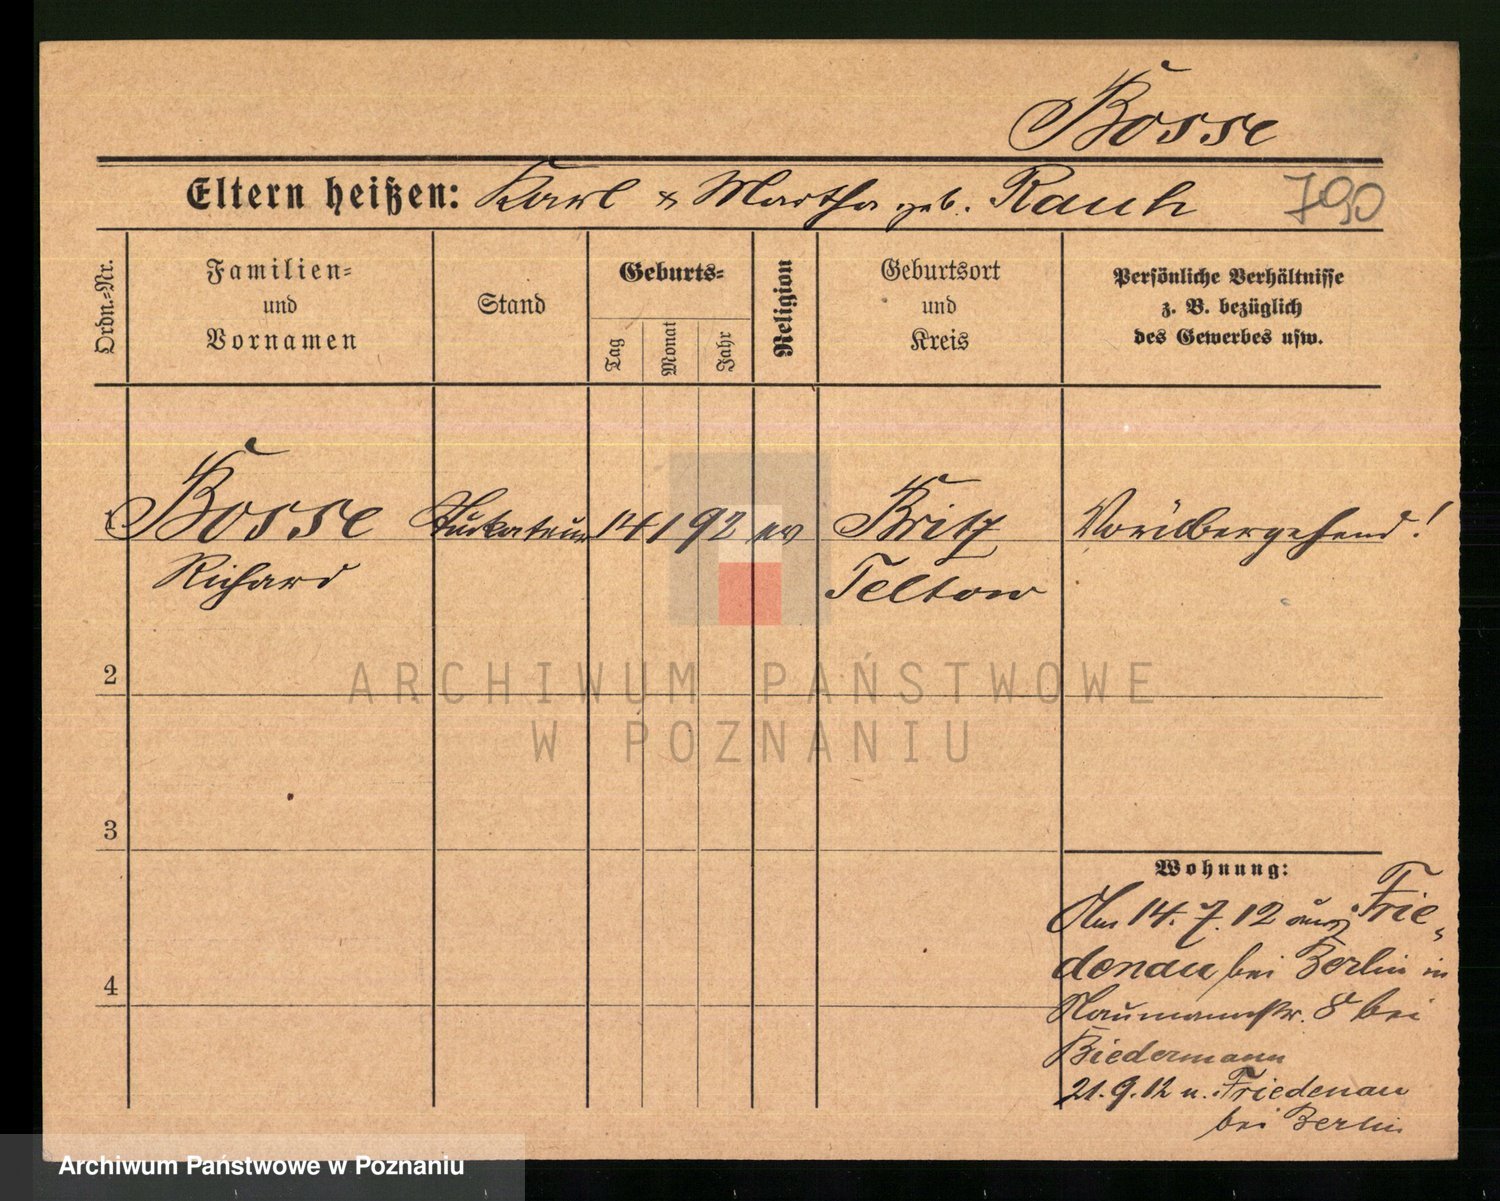 Bosse
Eltern heißen: Karl & Martha geb. Rauh 790
Ordn.=Nr.
Familien=
und
Vornamen
Stand
Geburts=
Tag
Monat
Jahr
Religion
Geburtsort
und
Kreis
Persönliche Verhältnisse
z. B. bezüglich
des Gewerbes usw.
1 Bosse Stukateur 14 1 92 ev Britz Vorübergehend!
Richard Teltow
2
ARCHIWUM PAŃSTWOWE
W POZNANIU
3
Wohnung:
4
Am 14.7.12 aus Frie-
denau bei Berlin in
Naumannstr. 8 bei
Biedermann
21.9.12 n. Friedenau
bei Berlin
Archiwum Państwowe w Poznaniu